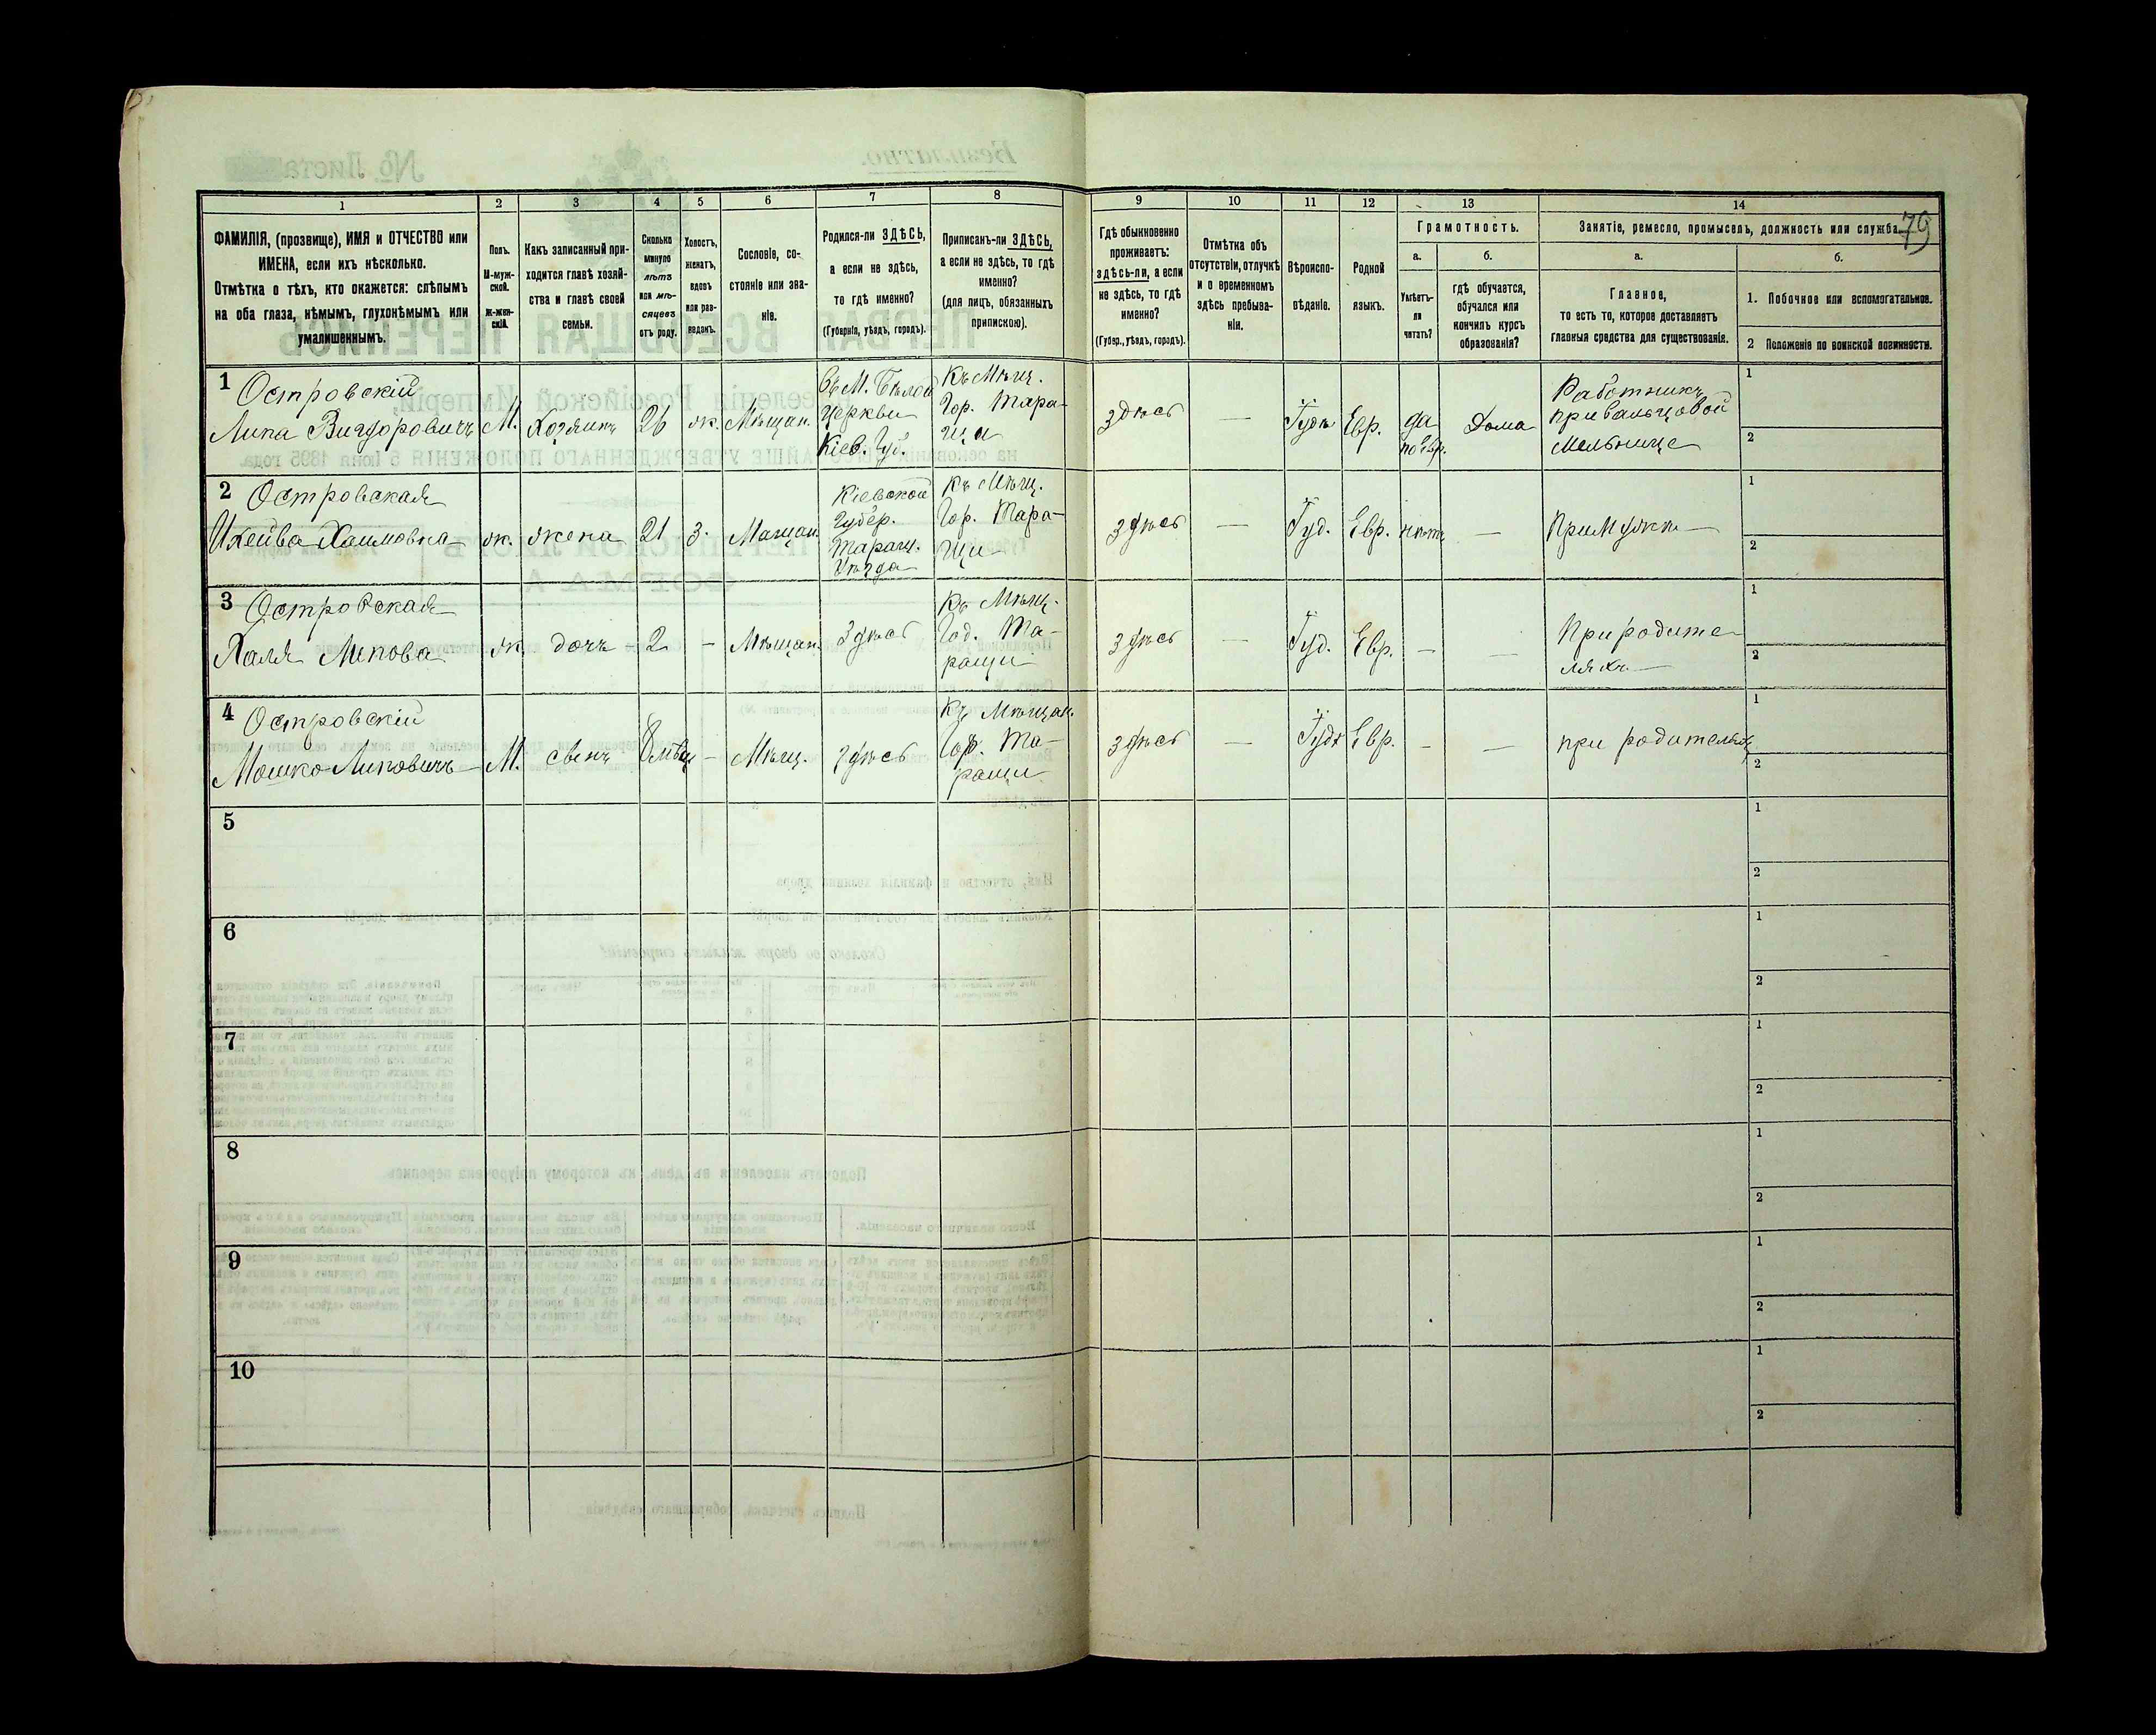 79
1
2
3
4
5
6
7
8
9
10
11
12
13
14
ФАМИЛІЯ, (прозвище), ИМЯ и ОТЧЕСТВО или
ИМЕНА, если ихъ нѣсколько.
Отмѣтка о тѣхъ, кто окажется: слѣпымъ
на оба глаза, нѣмымъ, глухонѣмымъ или
умалишеннымъ.
Полъ.
М-муж-
ской.
Ж-жен-
скій.
Какъ записанный при-
ходится главѣ хозяй-
ства и главѣ своей
семьи.
Сколько
минуло
лѣтъ
или мѣ-
сяцевъ
отъ роду.
Холостъ,
женатъ,
вдовъ
или раз-
веденъ.
Сословіе, со-
стояніе или зва-
ніе.
Родился-ли ЗДѢСЬ,
а если не здѣсь,
то гдѣ именно?
(Губернія, уѣздъ, городъ).
Приписанъ-ли ЗДѢСЬ,
а если не здѣсь, то гдѣ
именно?
(для лицъ, обязанныхъ
припискою).
Гдѣ обыкновенно
проживаетъ:
здѣсь-ли, а если
не здѣсь, то гдѣ
именно?
(Губер., уѣздъ, городъ).
Отмѣтка объ
отсутствіи, отлучкѣ
и о временномъ
здѣсь пребыва-
ніи.
Вѣроиспо-
вѣданіе.
Родной
языкъ.
Грамотность.
а.
Умѣетъ-
ли
читать?
б.
гдѣ обучается,
обучался или
кончилъ курсъ
образованія?
Занятіе, ремесло, промыселъ, должность или служба.
а.
Главное,
то есть то, которое доставляетъ
главныя средства для существованія.
б.
1. Побочное или вспомогательное.
2 Положеніе по воинской повинности.
1
Островскій
Липа Вигдоровичъ
М.
Хозяинъ
26
ж.
Мѣщан.
Въ М. Бѣлой
Церкви
Кіев. Губ.
Къ Мѣщ.
Гор. Тара-
щи
здѣсь
—
Іуд.
Евр.
да
по Евр.
Дома
Работникъ
при вальцовой
мельнице
1
2
2
Островская
Хаимовна
ж.
жена
21
з.
Мѣщан.
Кіевской
Губер.
Таращ.
Уѣзда
Къ Мѣщ.
Гор. Тара-
щи
здѣсь
—
Іуд.
Евр.
нѣтъ
—
При Мужѣ
1
2
3
Островская
Халя Липова
ж.
дочь
2
-
Мѣщан.
Здѣсь
Къ Мѣщ.
Гор. Та-
ращи
здѣсь
—
Іуд.
Евр.
-
—
При родите-
ляхъ
1
2
4
Островскій
Мошко Липовичъ
М.
сынъ
8 мѣсяц
-
Мѣщ.
здѣсь
Къ Мѣщан.
Гор. Та-
ращи
здѣсь
—
Іуд.
Евр.
-
—
при родителях
1
2
5
1
2
6
1
2
7
1
2
8
1
2
9
1
2
10
1
2